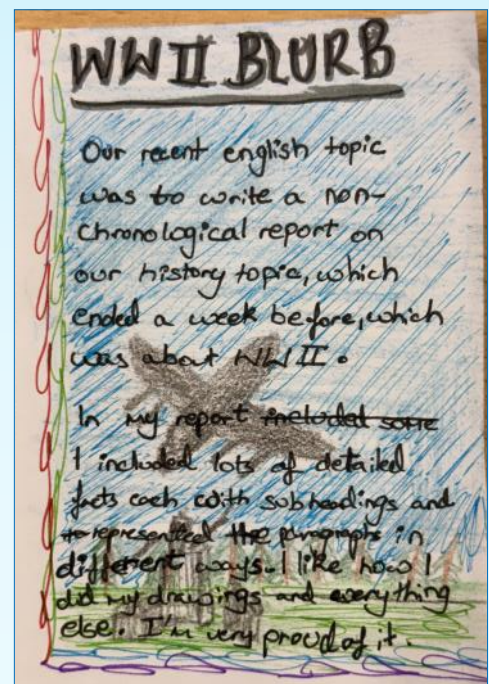 WW II BLURB
Our recent english topic
was to write a non-
chronological report on
our history topic, which
ended a week before, which
was about WW II.
In my report included some
I included lots of detailed
facts each with subheadings and
to represented the paragraphs in
different ways. I like how I
did my drawings and everything
else. I'm very proud of it.